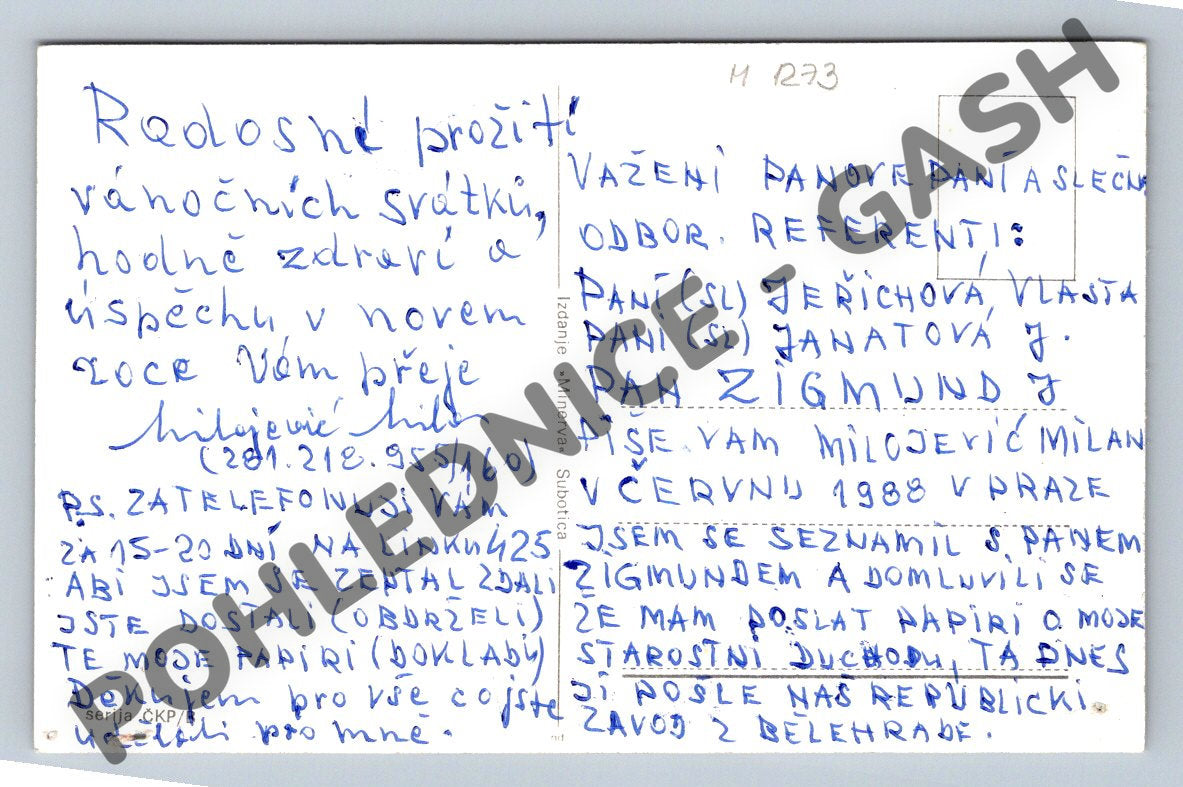 M 1273
Radosné prožití
vánočních svátků,
hodně zdraví a
úspěchu v novem
roce Vám přeje
Milojević Milan
(281.218.955/160)
P.S. ZATELEFONUJI VÁM
ZA 15-20 DNÍ NA LINKU 425
ABI JSEM SE ZEPTAL ZDALI
JSTE DOSTALI (OBDRŽELI)
TE MOJE PAPIRI (DOKLADY)
Děkujem pro vše co jste
udělali pro mně.
serija ČKP/
Izdanje »Minerva« Subotica
VAŽENÍ PANOVE PANÍ A SLEČN
ODBOR. REFERENTI:
PANÍ (SL) JEŘÍCHOVÁ VLASTA
PANÍ (SL) JANATOVÁ J.
PAN ZIGMUND J
PIŠE VAM MILOJEVIĆ MILAN
V ČERVNU 1988 V PRAZE
JSEM SE SEZNAMIL S PANEM
ZIGMUNDEM A DOMLUVILI SE
ŽE MAM POSLAT PAPIRI O MOJE
STAROSTNI DUCHODU, TA DNES
JI POŠLE NAŠ REPUBLICKI
ZAVOD Z BĚLEHRADE.
POHLEDNICE - GASH